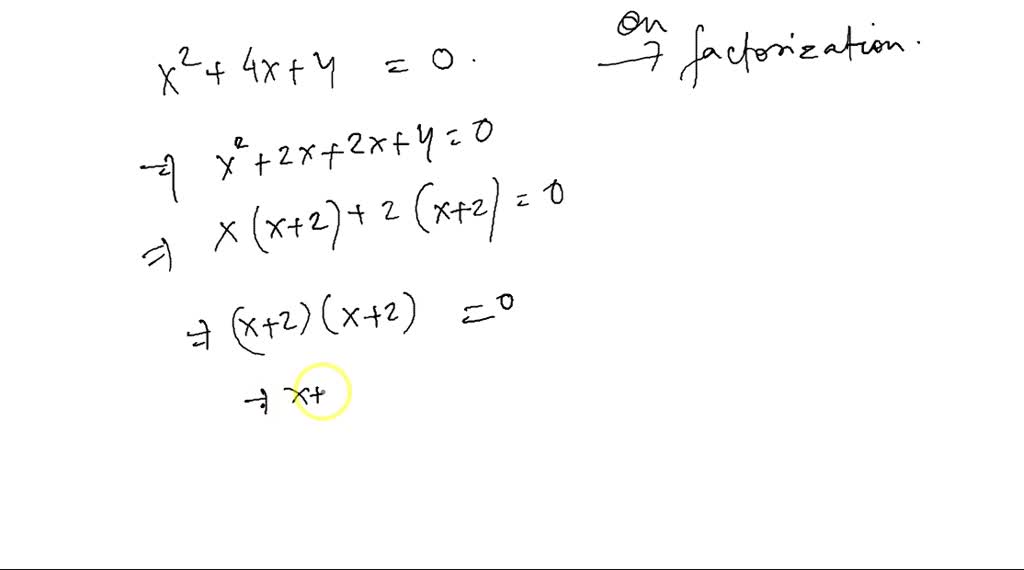 x² + 4x + 4 = 0.
On
→ factorization.
⇒ x² + 2x + 2x + 4 = 0
⇒ x (x+2) + 2 (x+2) = 0
⇒ (x+2) (x+2) = 0
⇒ x+